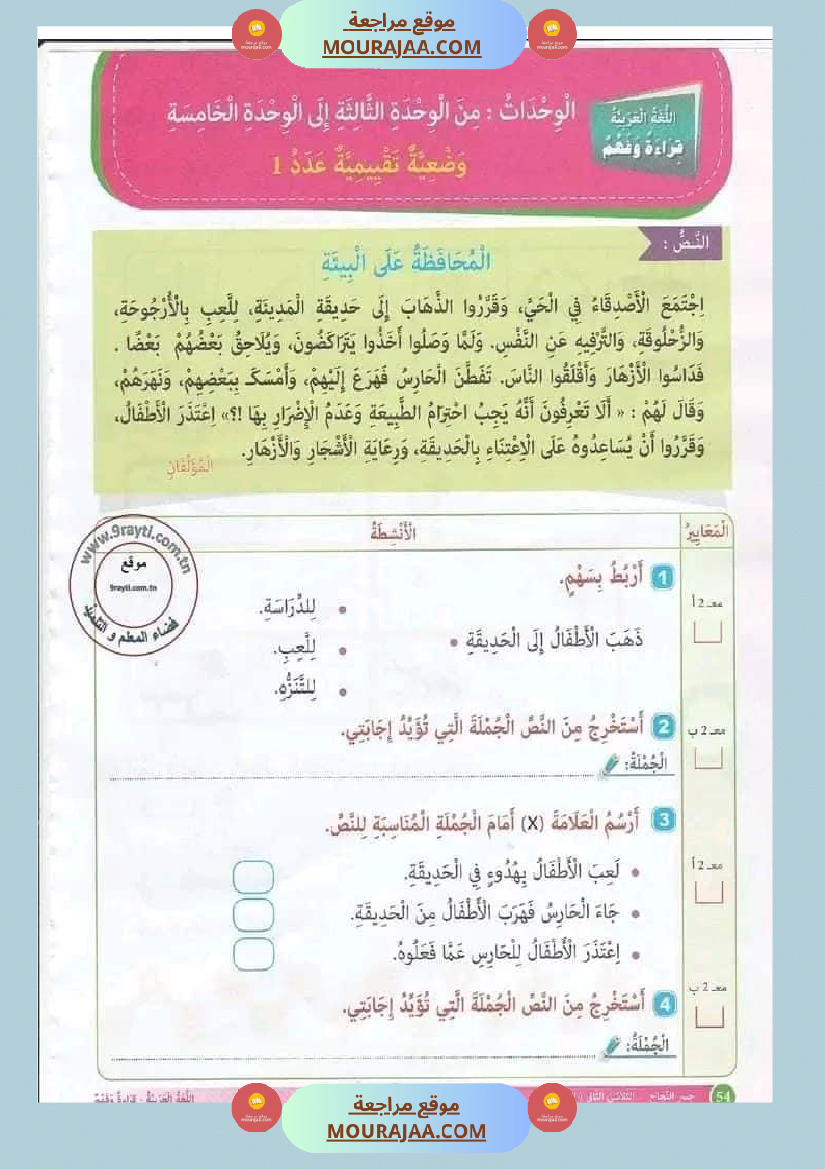 موقع مراجعة
MOURAJAA.COM
اللُّغَةُ الْعَرَبِيَّةُ
قِرَاءَةٌ وَفَهْمٌ
الْوِحْدَاتُ : مِنَ الْوِحْدَةِ الثَّالِثَةِ إِلَى الْوِحْدَةِ الْخَامِسَةِ
وَضْعِيَّةٌ تَقْيِيمِيَّةٌ عَدَدُ 1
النَّصُّ :
الْمُحَافَظَةُ عَلَى الْبِيئَةِ
اِجْتَمَعَ الْأَصْدِقَاءُ فِي الْحَيِّ، وَقَرَّرُوا الذَّهَابَ إِلَى حَدِيقَةِ الْمَدِينَةِ، لِلَّعِبِ بِالْأُرْجُوحَةِ،
وَالزُّحْلُوقَةِ، وَالتَّرْفِيهِ عَنِ النَّفْسِ. وَلَمَّا وَصَلُوا أَخَذُوا يَتَرَاكَضُونَ، وَيُلَاحِقُ بَعْضُهُمْ بَعْضًا .
فَدَاسُوا الْأَزْهَارَ وَأَقْلَقُوا النَّاسَ. تَفَطَّنَ الْحَارِسُ فَهَرَعَ إِلَيْهِمْ، وَأَمْسَكَ بِبَعْضِهِمْ، وَنَهَرَهُمْ،
وَقَالَ لَهُمْ : « أَلَا تَعْرِفُونَ أَنَّهُ يَجِبُ احْتِرَامُ الطَّبِيعَةِ وَعَدَمُ الْإِضْرَارِ بِهَا !؟» اِعْتَذَرَ الْأَطْفَالُ،
وَقَرَّرُوا أَنْ يُسَاعِدُوهُ عَلَى الْاِعْتِنَاءِ بِالْحَدِيقَةِ، وَرِعَايَةِ الْأَشْجَارِ وَالْأَزْهَارِ.
الْمُؤَلِّفَانِ
الْمَعَايِيرُ
الْأَنْشِطَةُ
www.9rayti.com.tn
موقع
9rayti.com.tn
فضاء المعلم و التلميذ
معـ 2 أ
1 أَرْبُطُ بِسَهْمٍ.
• لِلدِّرَاسَةِ.
ذَهَبَ الْأَطْفَالُ إِلَى الْحَدِيقَةِ •
• لِلَّعِبِ.
• لِلتَّنَزُّهِ.
معـ 2 ب
2 أَسْتَخْرِجُ مِنَ النَّصِّ الْجُمْلَةَ الَّتِي تُؤَيِّدُ إِجَابَتِي.
الْجُمْلَةُ:
3 أَرْسُمُ الْعَلَامَةَ (X) أَمَامَ الْجُمْلَةِ الْمُنَاسِبَةِ لِلنَّصِّ.
معـ 2 أ
• لَعِبَ الْأَطْفَالُ بِهُدُوءٍ فِي الْحَدِيقَةِ.
• جَاءَ الْحَارِسُ فَهَرَبَ الْأَطْفَالُ مِنَ الْحَدِيقَةِ.
• اِعْتَذَرَ الْأَطْفَالُ لِلْحَارِسِ عَمَّا فَعَلُوهُ.
معـ 2 ب
4 أَسْتَخْرِجُ مِنَ النَّصِّ الْجُمْلَةَ الَّتِي تُؤَيِّدُ إِجَابَتِي.
الْجُمْلَةُ:
54
جسر النّجاح الثّلاثي الثّاني
اللُّغَةُ الْعَرَبِيَّةُ - قِرَاءَةٌ وَفَهْمٌ
موقع مراجعة
MOURAJAA.COM